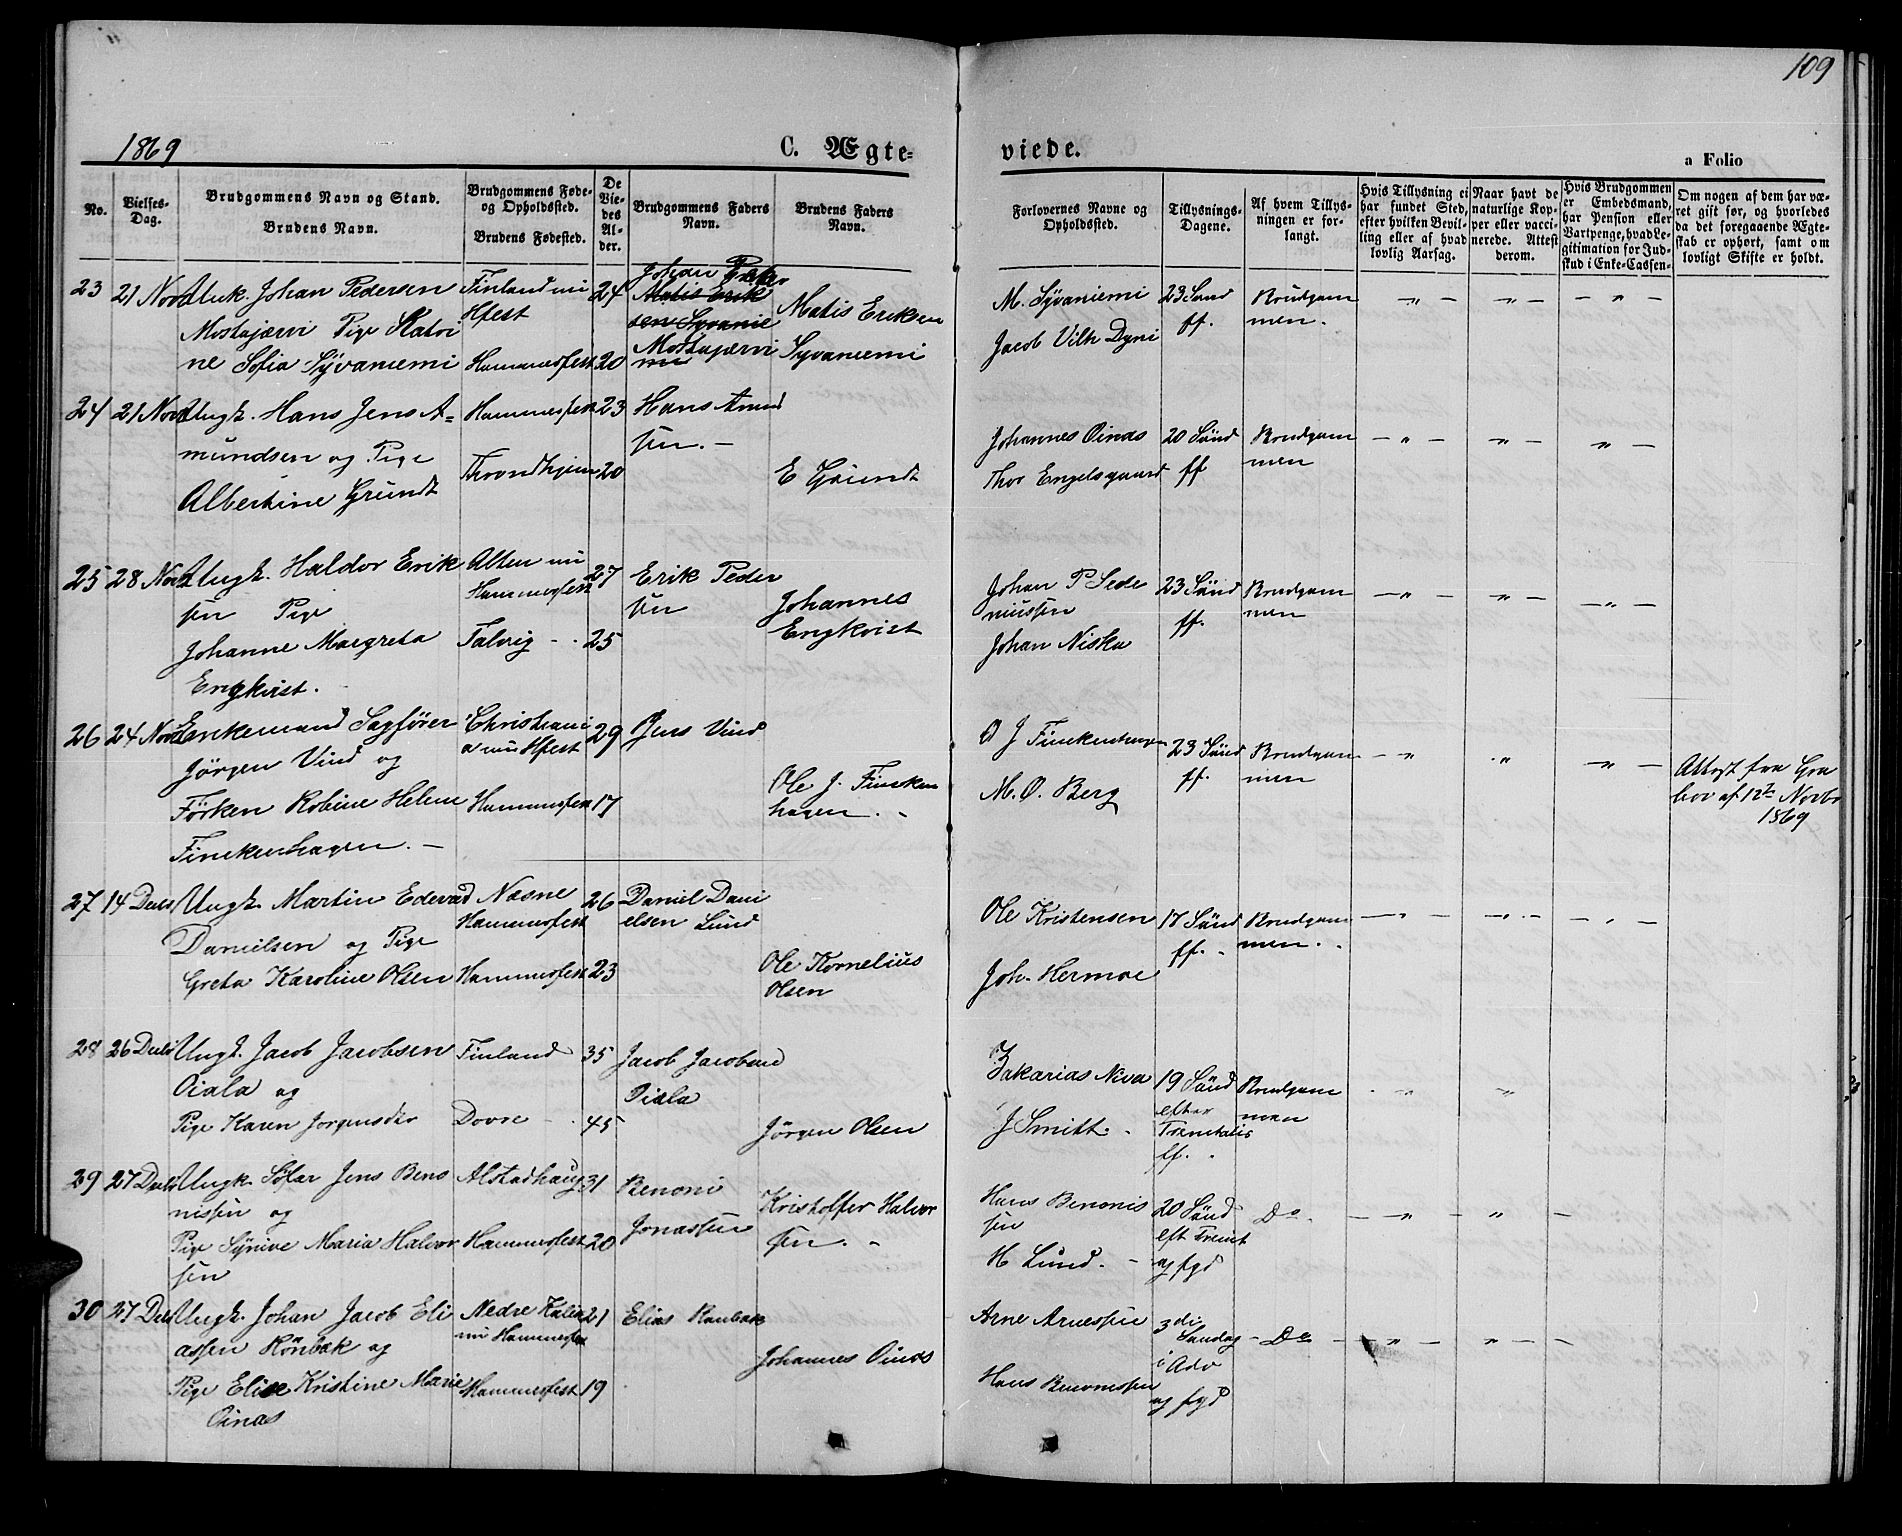 109
1869
C. Ægte-
viede.
a Folio
No.
Vielses-
Dag.
Brudgommens Navn og Stand.
Brudens Navn.
Brudgommens Føde-
og Opholdssted.
Brudens Fødested.
De
Vie-
des
Al-
der.
Brudgommens Faders
Navn.
Brudens Faders
Navn.
Forlovernes Navne og
Opholdssted.
Tillysnings-
Dagene.
Af hvem Tillys-
ningen er for-
langt.
Hvis Tillysning ei
har fundet Sted,
efter hvilken Bevil-
ling eller af hvad
lovlig Aarsag.
Naar havt de
naturlige Kop-
per eller vacci-
nerede. Attest
derom.
Hvis Brudgommen
er Embedsmand,
har Pension eller
Vartpenge, hvad Le-
gitimation for Ind-
skud i Enke-Cassen-
Om nogen af dem har væ-
ret gift før, og hvorledes
da det foregaaende Ægte-
skab er ophørt, samt om
lovligt Skifte er holdt.
23 21 Nov Johan Pedersen
Mostajærvi Pige Katri
ne Sofia Syvaniemi
Finland nu
Hfest
Hammerfest
24
20
Johan Peder
Matis Erik
sen Syvanie
Mostajærvi
Matis Eriksen
Syvaniemi
M. Syvaniemi
Jacob Vilh Dyni
23 Sønd
ff.
Brudgom
men.
24 21 Nov Ungk. Hans Jens A=
mundsen og Pige
Albertine Grundt
Hammerfest
Throndhjem
23
20
Hans Amund
sen. -
E Grundt
Johannes Oinas
Thor Engelsgaard
20 Sønd
ff
Brudgom
men
25 28 Nov Ungk. Haldor Erik
sen Pige
Johanne Margreta
Engkvist.
Alten nu
Hammerfest
Talvig - .
27
25
Erik Peder
sen
Johannes
Engkvist
Johan P Sede
niussen
Johan Niska
23 Sønd
ff.
Brudgom
men
26 24 Nov Enkemand Sagfører
Jørgen Vind og
Frøken Robine Helene
Finckenhagen. -
Christiani
a nu Hfest
Hammerfest
29
17
Jens Vind
Ole J. Fincken
hagen. -
O J Finckenhagen
M. O. Berg
23 Sønd
ff.
Brudgom
men
Attest fra Gra
bov af 12te Novbr
1869
27 14 Decb Ungk. Martin Edevad
Danielsen og Pige
Greta Karoline Olsen
Næsne
Hammerfest
Hammerfest
26
23
Daniel Dani
elsen Lund
Ole Kornelius
Olsen
Ole Kristensen
Joh. Hermoe
17 Sønd
ff. -
Brudgom
men. .
28 26 Decb Ungk. Jacob Jacobsen
Oiala og
Pige Karen Jorgensdtr
Finland
Dovre - .
35
45
Jacob Jacobsen
Oiala
Jørgen Olsen
Zakarias Niva
J Smitt. -
19 Sønd
efter
Trinitatis
ff. -
Brudgom
men
29 27 Decb Ungk. Jens Beno
nissen og
Pige Synive Maria Halvor
sen
Alstadhaug
Hammerfest
31
20
Benoni
Jonassen
Kristoffer Halvor
sen. -
Hans Benonis
sen
H Lund. -
20 Sønd
eft Trinit
og fgd
Do.
30 27 Decb Ungk. Johan Jacob Eli
assen Rönbak og
Pige Elise Kristine Marie
Oinas
Nedre Kalix
nu Hammerfest
Hammerfest
21
19
Elias Ranbak
Johannes Oinas
Arne Arnessen
Hans Benonissen
3die
Søndag
i Adv
og fgd
Do